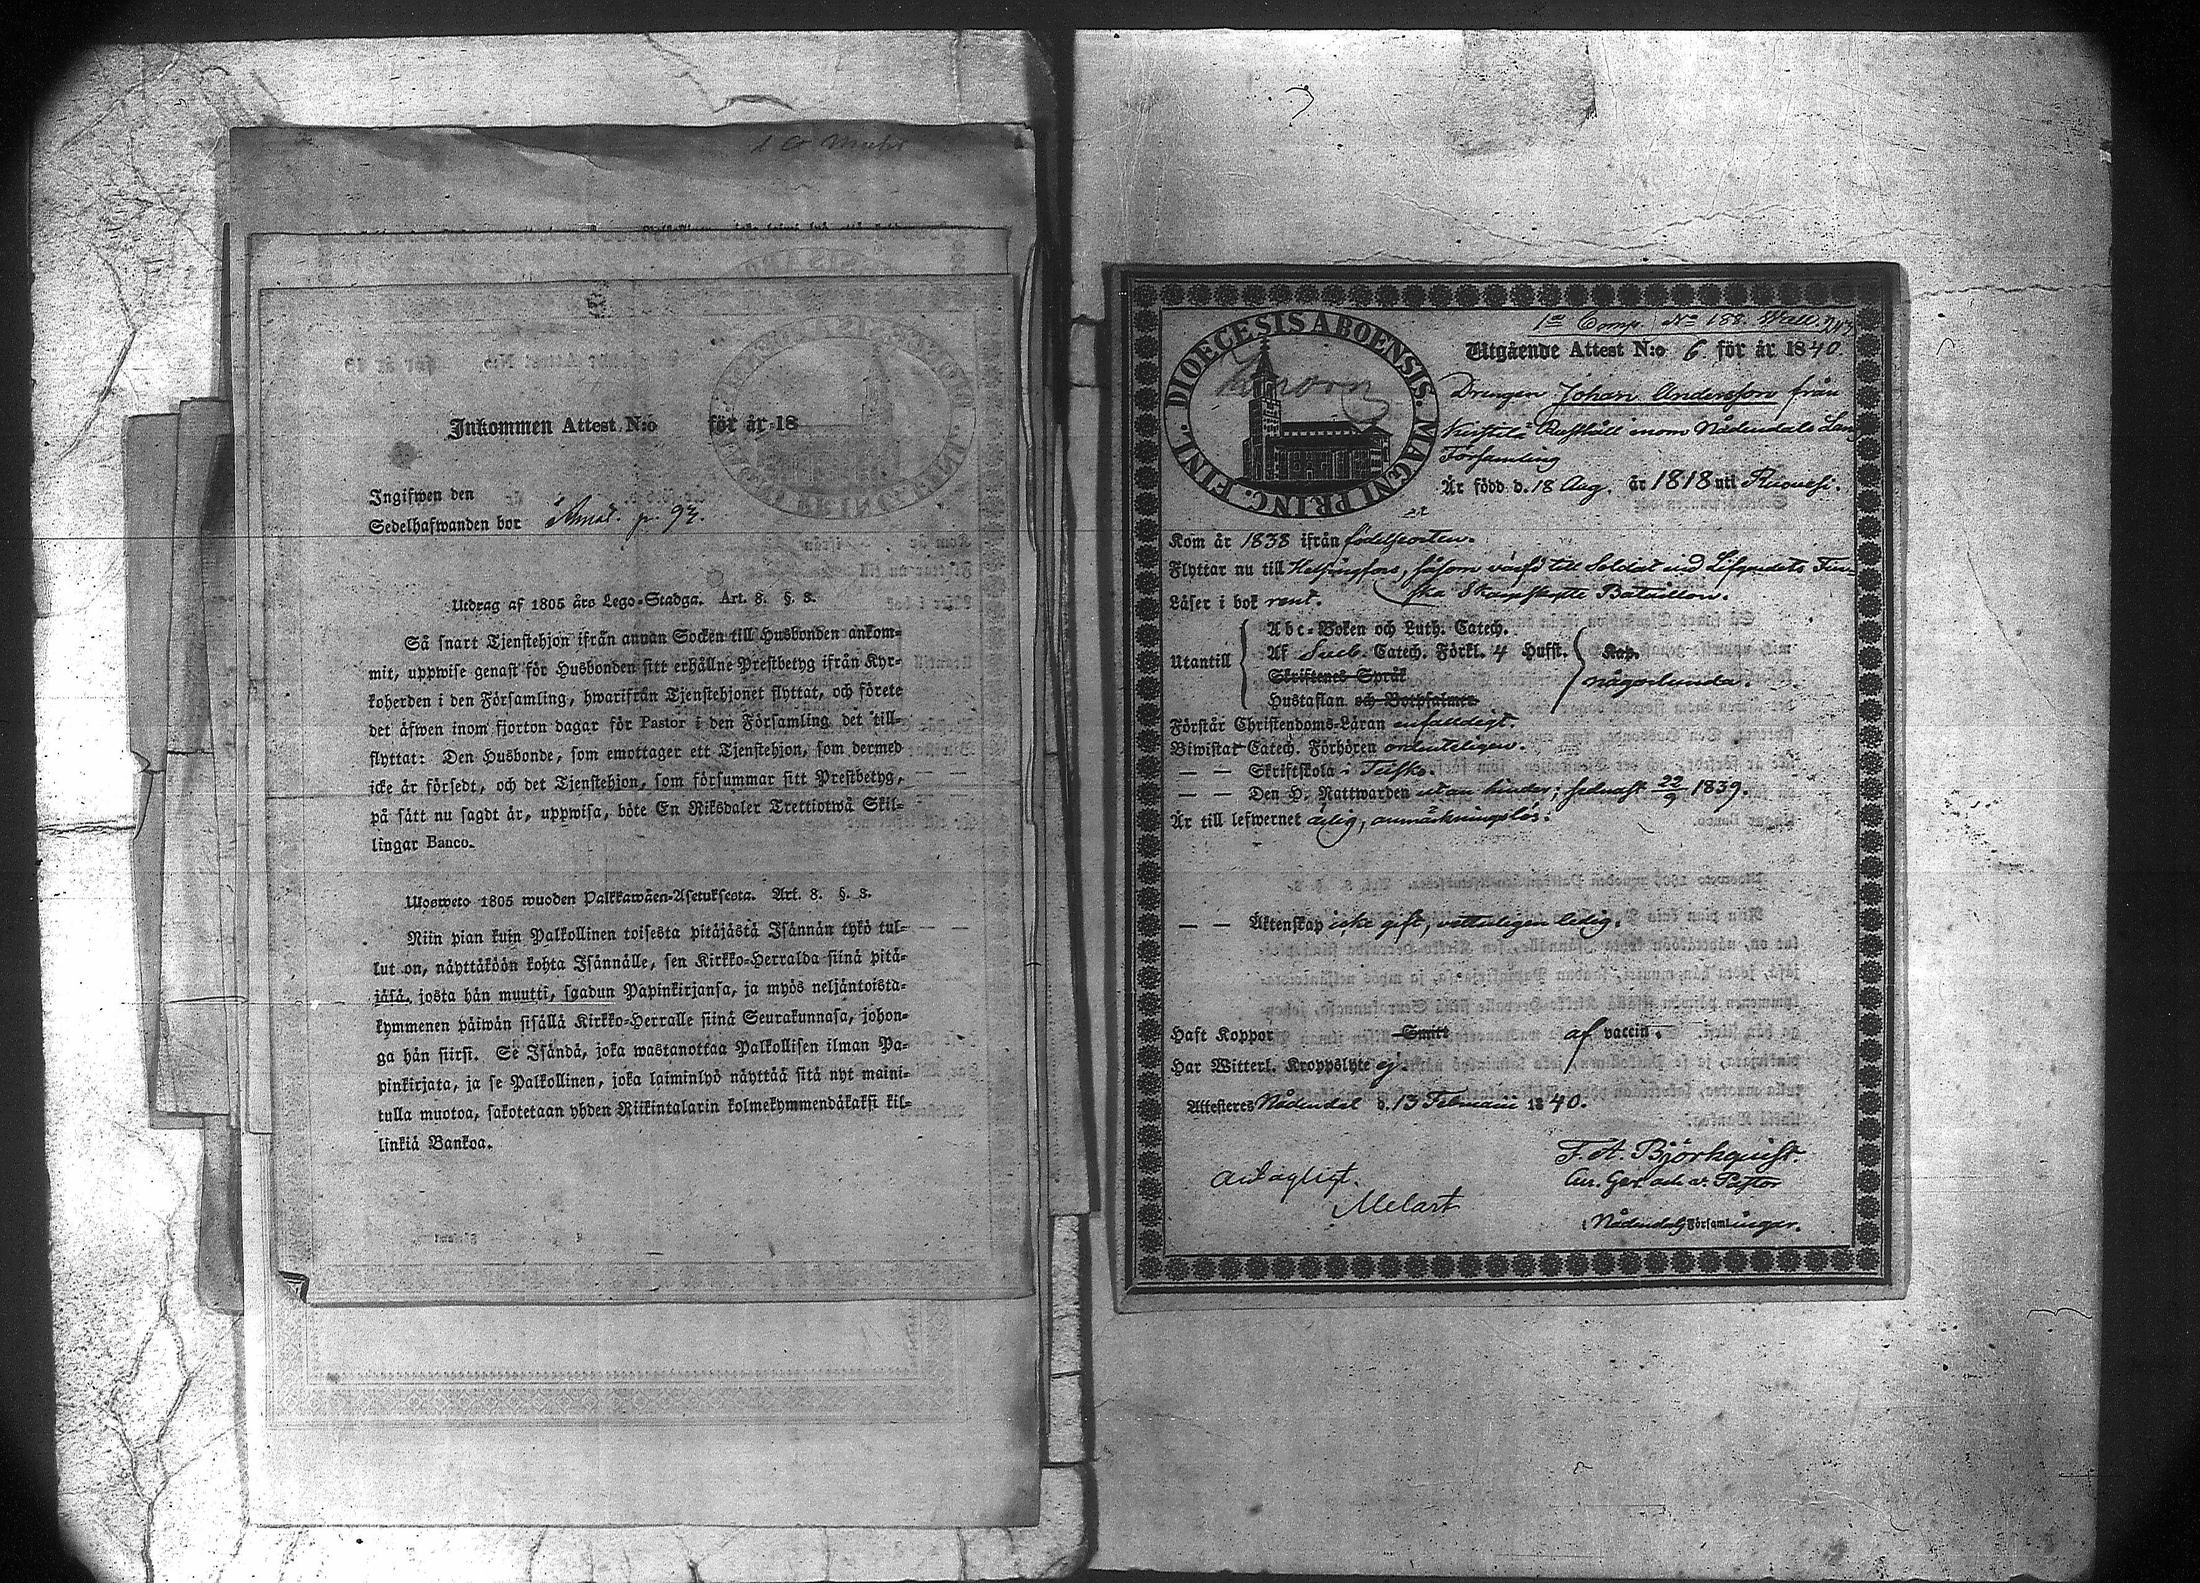 Inkommen Attest N:o för år 18
Ingifwen den
Sedelhafwanden bor p. 93.
Utdrag af 1805 års Lego-Stadga. Art. 8. §. 8.
Så snart Tjenstehjon ifrån annan Socken till Husbonden ankom-
mit, uppwise genast för Husbonden sitt erhållne Prestbetyg ifrån Kyr-
koherden i den Församling, hwarifrån Tjenstehjonet flyttat, och förete
det äfwen inom fjorton dagar för Pastor i den Församling det till-
flyttat: Den Husbonde, som emottager ett Tjenstehjon, som dermed
icke är försedt, och det Tjenstehjon, som försummar sitt Prestbetyg,
på sätt nu sagdt är, uppwisa, böte En Riksdaler Trettiotwå Skil-
lingar Banco.
Ulosweto 1805 wuoden Palkkawäen-Asetuksesta. Art. 8. §. 8.
Niin pian kuin Palkollinen toisesta pitäjästä Isännän tykö tul-
lut on, näyttäköön kohta Isännälle, sen Kirkko-Herralda siinä pitä-
jäsä, josta hän muutti, saadun Papinkirjansa, ja myös neljäntoista-
kymmenen päiwän sisällä Kirkko-Herralle siinä Seurakunnasa, johon-
ga hän siirsi. Se Isändä, joka wastanottaa Palkollisen ilman Pa-
pinkirjata, ja se Palkollinen, joka laiminlyö näyttää sitä nyt maini-
tulla muotoa, sakotetaan yhden Riikintalarin kolmekymmendäkaksi kil-
linkiä Bankoa.
DIOECESIS ABOENSIS. MAGNI PRINC. FINL.
1a Comp. No 188.
Utgående Attest N:o 6. för år 1840.
Drengen Johan Andersson från
Rusthåll inom Nådendals
Församling
Är född d. 18 Aug. år 1818 uti Ruovesi.
Kom år 1838 ifrån födelseorten.
Flyttar nu till Helsingfors, såsom till Soldat vid Lifgardets Fin-
Läser i bok rent. ska Skarpskytte Bataillon.
Abc-Boken och Luth. Catech.
Utantill Af Sveb. Catech. Förkl. 4 Hufst. Kap.
Skriftenes Språk någorlunda.
Hustaflan och Botpsalmer
Förstår Christendoms-Läran enfaldigt.
Biwistat Catech. Förhören ordenteligen.
— — Skriftskola
— — Den H. Nattwarden utan hinder; sednast 22/9 1839.
Är till lefwernet ärlig, anmärkningslös.
— — Äktenskap icke gift, vetterligen ledig.
Haft Koppor Smitt af vaccin.
Har Witterl. Kroppslyte ej
Attesteres Nådendal d. 13 Februarii 1840.
F. A. Björkquist.
Pastor
Melart
i Nådendals Församlingar.